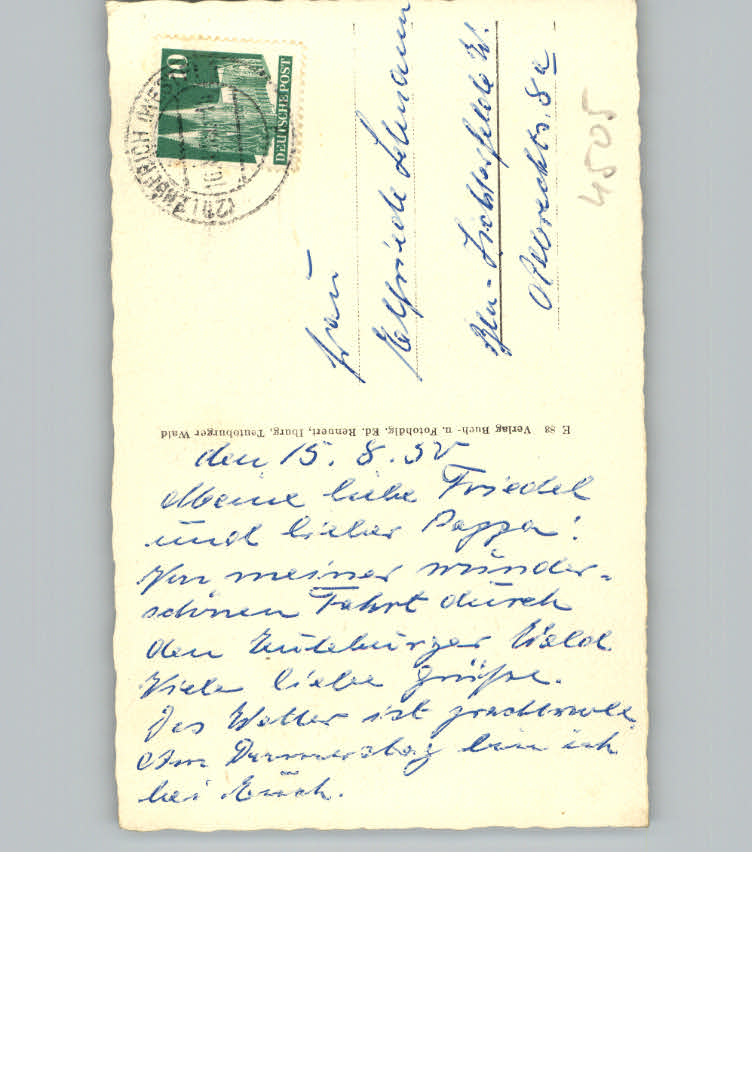 10
DEUTSCHE POST
Frau
Elfriede Lehmann
Bln-Lichterfelde W.
8a
4505
E 88 Verlag Buch- u. Fotohdlg. Ed. Rennert, Iburg, Teutoburger Wald
den 15. 8. 50
Meine liebe Friedel
und lieber Pappa!
Von meiner wunder-
schönen Fahrt durch
den Teuteburger Wald
Viele liebe Grüße.
Das Wetter ist prachtvoll.
Am Donnerstag bin ich
bei Euch.